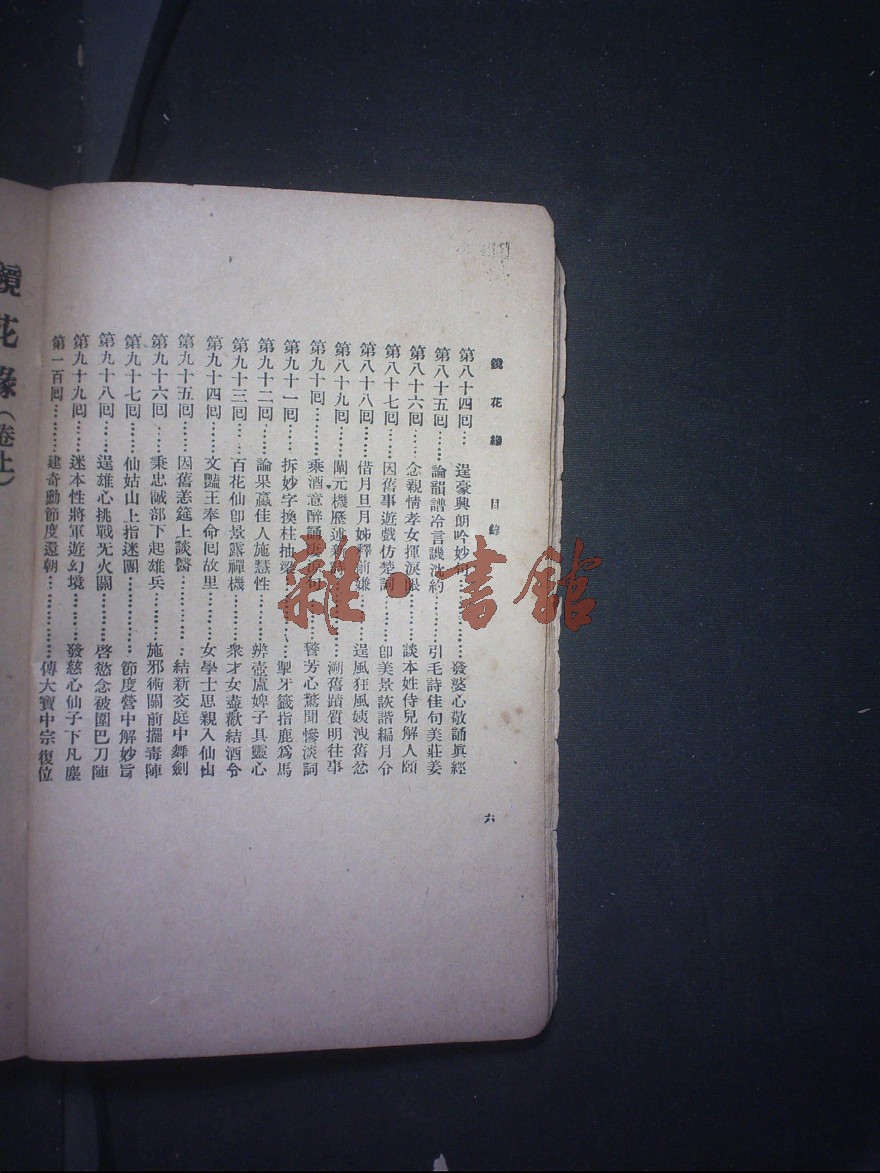 鏡花緣 目錄 六
第八十四囘… 逞豪興朗吟妙句………發婆心敬誦眞經
第八十五囘…… 論韻譜冷言譏沈約………引毛詩佳句美莊姜
第八十六囘…… 念親情孝女揮淚眼………談本姓侍兒解人頤
第八十七囘…… 因舊事遊戲仿楚詞………卽美景詼諧編月令
第八十八囘…… 借月旦月姊釋前嫌………逞風狂風姨洩舊忿
第八十九囘…… 闡元機歷述新詩………溯舊蹟質明往事
第九十囘……… 乘酒意醉誦凄涼句………警芳心驚聞慘淡詞
第九十一囘…… 拆妙字換柱抽梁………掣牙籤指鹿爲馬
第九十二囘…… 論果蠃佳人施慧性………辨壺盧婢子具靈心
第九十三囘…… 百花仙卽景露禪機………衆才女盡歡結酒令
第九十四囘…… 文豔王奉命囘故里………女學士思親入仙山
第九十五囘…… 因舊恙筵上談醫………結新交庭中舞劍
第九十六囘…… 秉忠誠部下起雄兵………施邪術關前擺毒陣
第九十七囘…… 仙姑山上指迷團………節度營中解妙旨
第九十八囘…… 逞雄心挑戰无火關………啓慾念被圍巴刀陣
第九十九囘…… 迷本性將軍遊幻境………發慈心仙子下凡塵
第一百囘……… 建奇勳節度還朝………傳大寶中宗復位
鏡花緣(卷上)
雜·書館